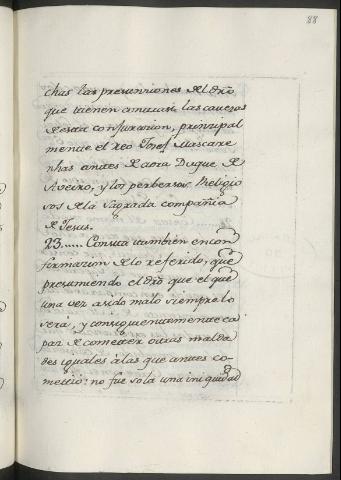 88
chas las presumciones del dro,
que tienen contra si las cavezas
de esta conjuracion, principal
mente el reo Josef Mascare
nhas antes de aora Duque de
Aveiro, y los perbersos Religio
sos de la Sagrada compañia
de Jesus.
23..... Consta tambien en con
firmazion de lo referido, que
presumiendo el dro que el que
una vez a sido malo siempre lo
sera, y consiguientemente ca
paz de cometer otras malda
des iguales a las que antes co
metio: no fue sola una iniquidad